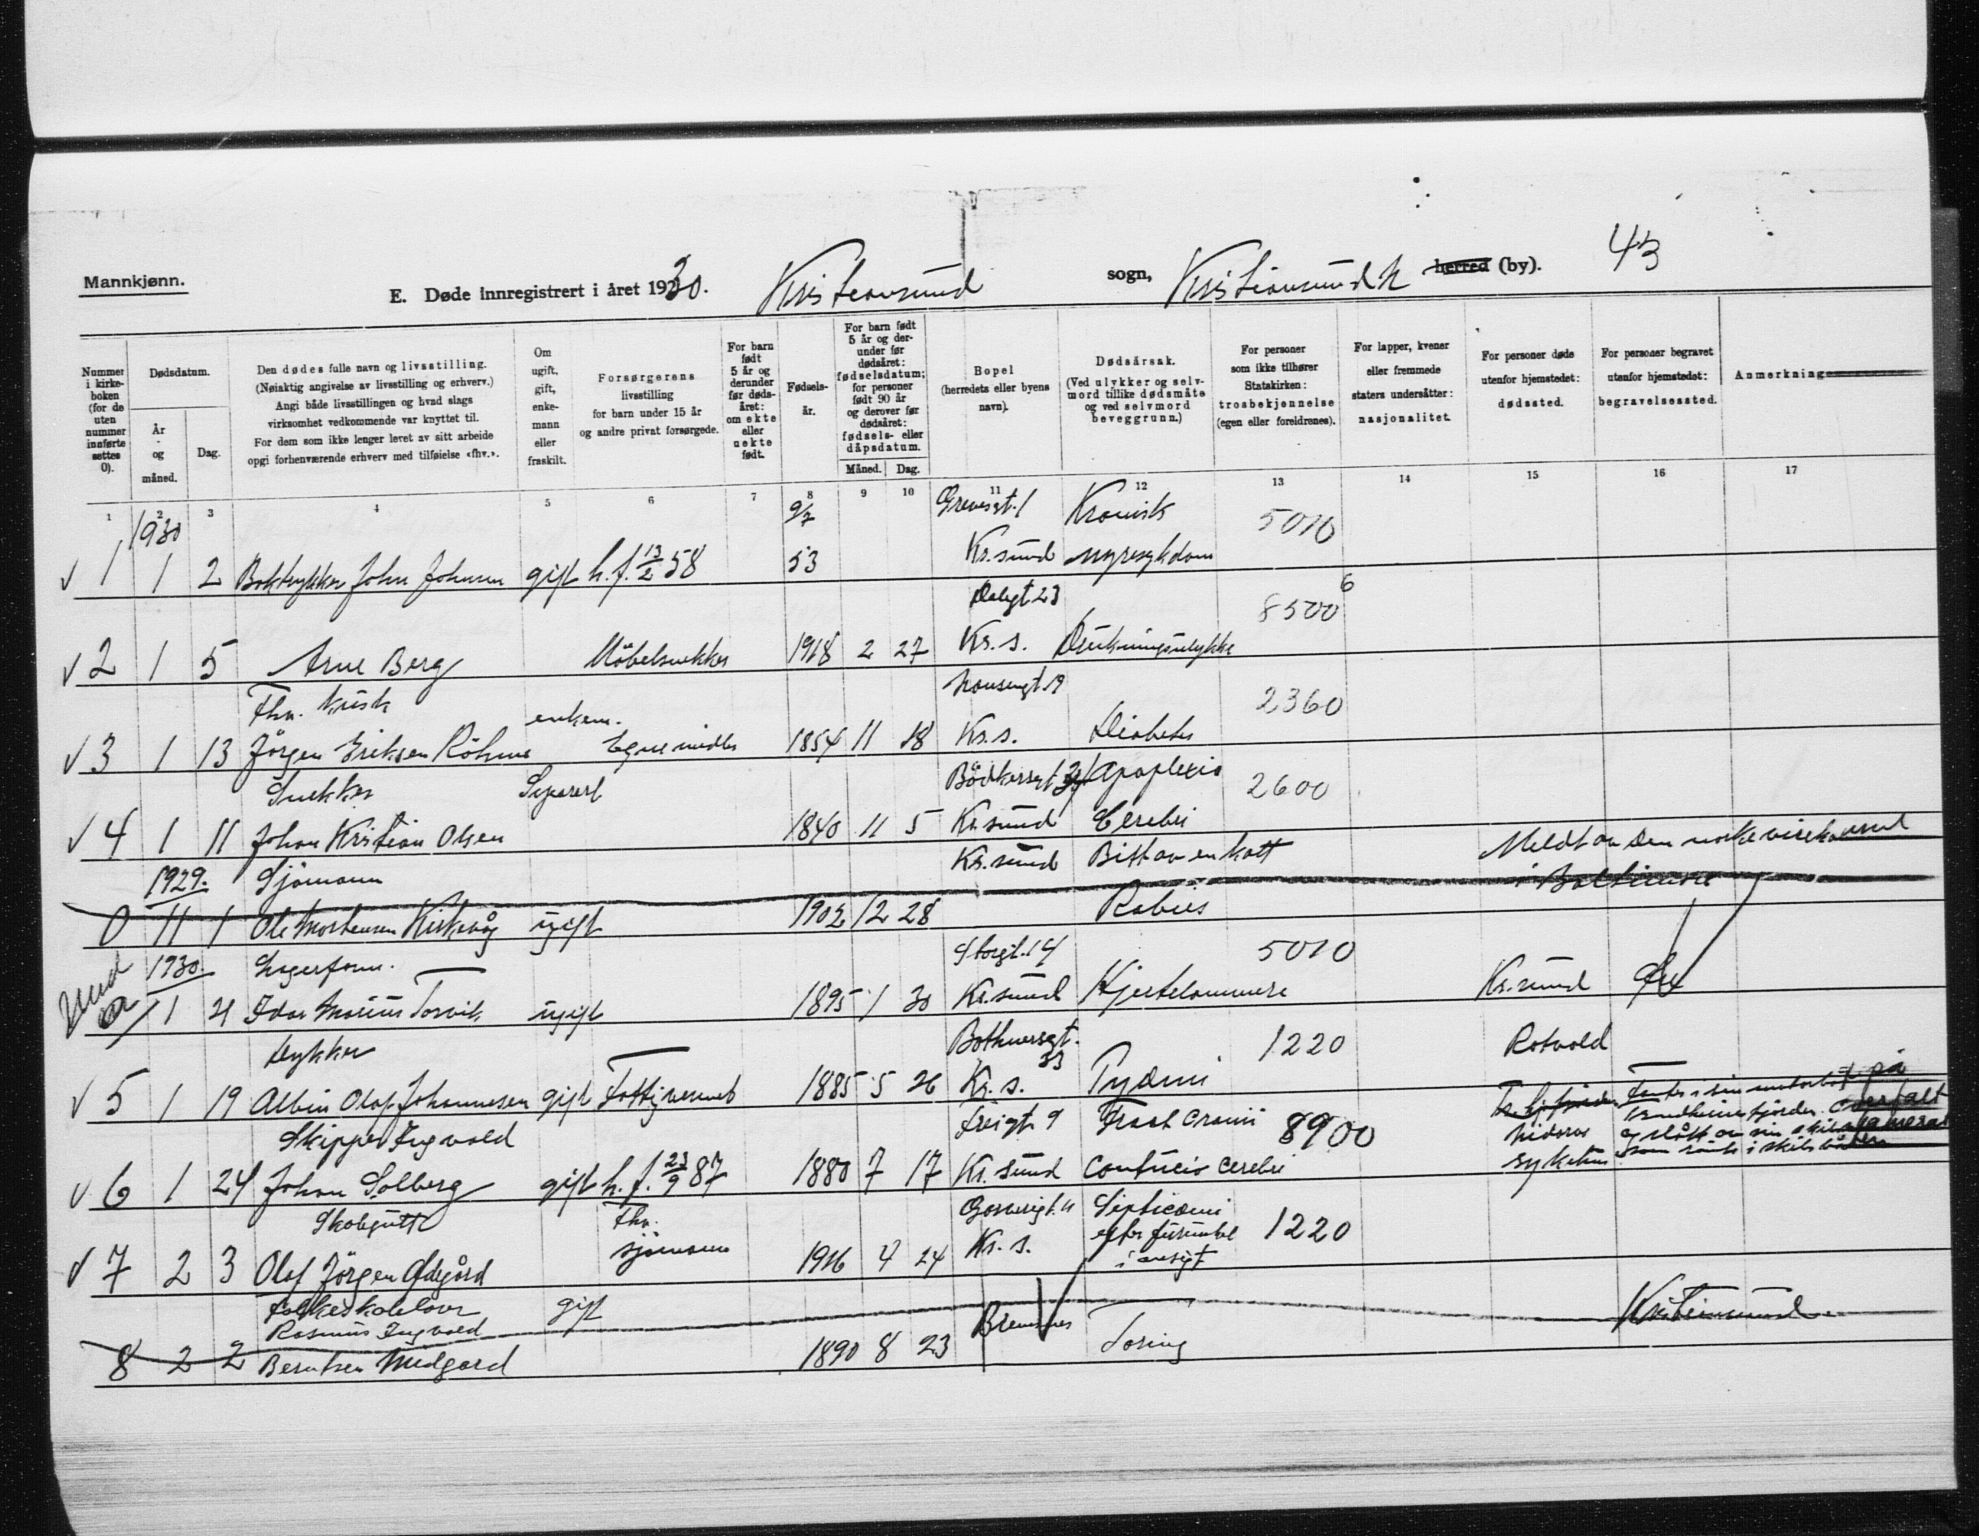 43
Mannkjønn.
E. Døde innregistrert i året 1930. Kristiansund sogn, Kristiansund N herred (by).
Nummer i kirkeboken (for de uten nummer innførte settes 0).
Dødsdatum.
År og måned.
Dag.
Den dødes fulle navn og livsstilling.
(Nøiaktig angivelse av livsstilling og erhverv.)
Angi både livsstillingen og hvad slags
virksomhet vedkommende var knyttet til.
For dem som ikke lenger levet av sitt arbeide
opgi forhenværende erhverv med tilføielse «fhv.».
Om ugift, gift, enkemann eller fraskilt.
Forsørgerens livsstilling
for barn under 15 år
og andre privat forsørgede.
For barn født 5 år og derunder før dødsåret: om ekte eller uekte født.
Fødselsår.
For barn født 5 år og derunder før dødsåret: fødselsdatum; for personer født 90 år og derover før dødsåret: fødsels- eller dåpsdatum.
Måned. Dag.
Bopel
(herredets eller byens navn).
Dødsårsak.
(Ved ulykker og selvmord tillike dødsmåte og ved selvmord beveggrunn.)
For personer som ikke tilhører Statskirken: trosbekjennelse (egen eller foreldrenes).
For lapper, kvener eller fremmede staters undersåtter: nasjonalitet.
For personer døde utenfor hjemstedet: dødssted.
For personer begravet utenfor hjemstedet: begravelsessted.
Anmerkning
1 2 3 4 5 6 7 8 9 10 11 12 13 14 15 16 17
1930 9/7 Grevesgt. 1 Kronisk 5010
√ 1 1 2 Boktrykker John Johnsen gift h. f. 13/2 58 53 Kr.sund nyresykdom
Dalegt 23 8500 6
√ 2 1 5 Arne Berg Møbelsnekker 1918 2 27 Kr. s. Drukningsulykke
Fhv. kusk enkem. Hansengt 19 2360
√ 3 1 13 Jørgen Eriksen Egne midler 1854 11 18 Kr. s. Diabetes
Snekker Separert Bødkersgt Apoplexia 2600
√ 4 1 11 Johan Kristian Olsen 1840 11 5 Kr.sund Cerebri
1929. Sjømann Kr.sund Bitt av en katt Meldt av den norske visekonsul
0 11 1 Ole Mortensen Kirkvåg ugift 1902 12 28 Rabies i Baltimore
1930. Lagerform. Storgt. 14 5010
1 21 Idar Marius Torvik ugift 1895 1 30 Kr.sund Hjertelammelse Kr.sund
Dykker Bothnersgt. 33 1220 Rotvold
√ 5 1 19 Albin Olaf Johannesen gift 1885 5 26 Kr. s. Pyæmi
Skipper Ingvald Freigt 9 Fract cranii 8900 Nidaros
√ 6 1 24 Johan Solberg gift h. f. 23/9 87 1880 7 17 Kr.sund Contusio cerebri sykehus
på
overfalt
og slått av sin
Skolegutt Fhv. sjømann Septicæmi 1220
√ 7 2 3 Olaf Jørgen Ødegård 1916 4 24 Kr. s. efter furunkel
i ansigt
Folkeskolelærer gift
Rasmus Ingvald Bremsnes Kristiansund
8 2 2 Berntsen Midgard 1890 8 23